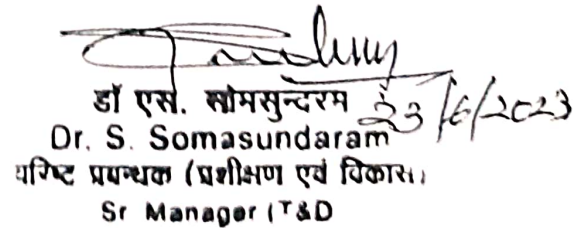 डॉ एस. सोमसुन्दरम 23/6/2023
Dr. S. Somasundaram
वरिष्ट प्रबन्धक (प्रशीक्षण एवं विकास)
Sr Manager (T&D